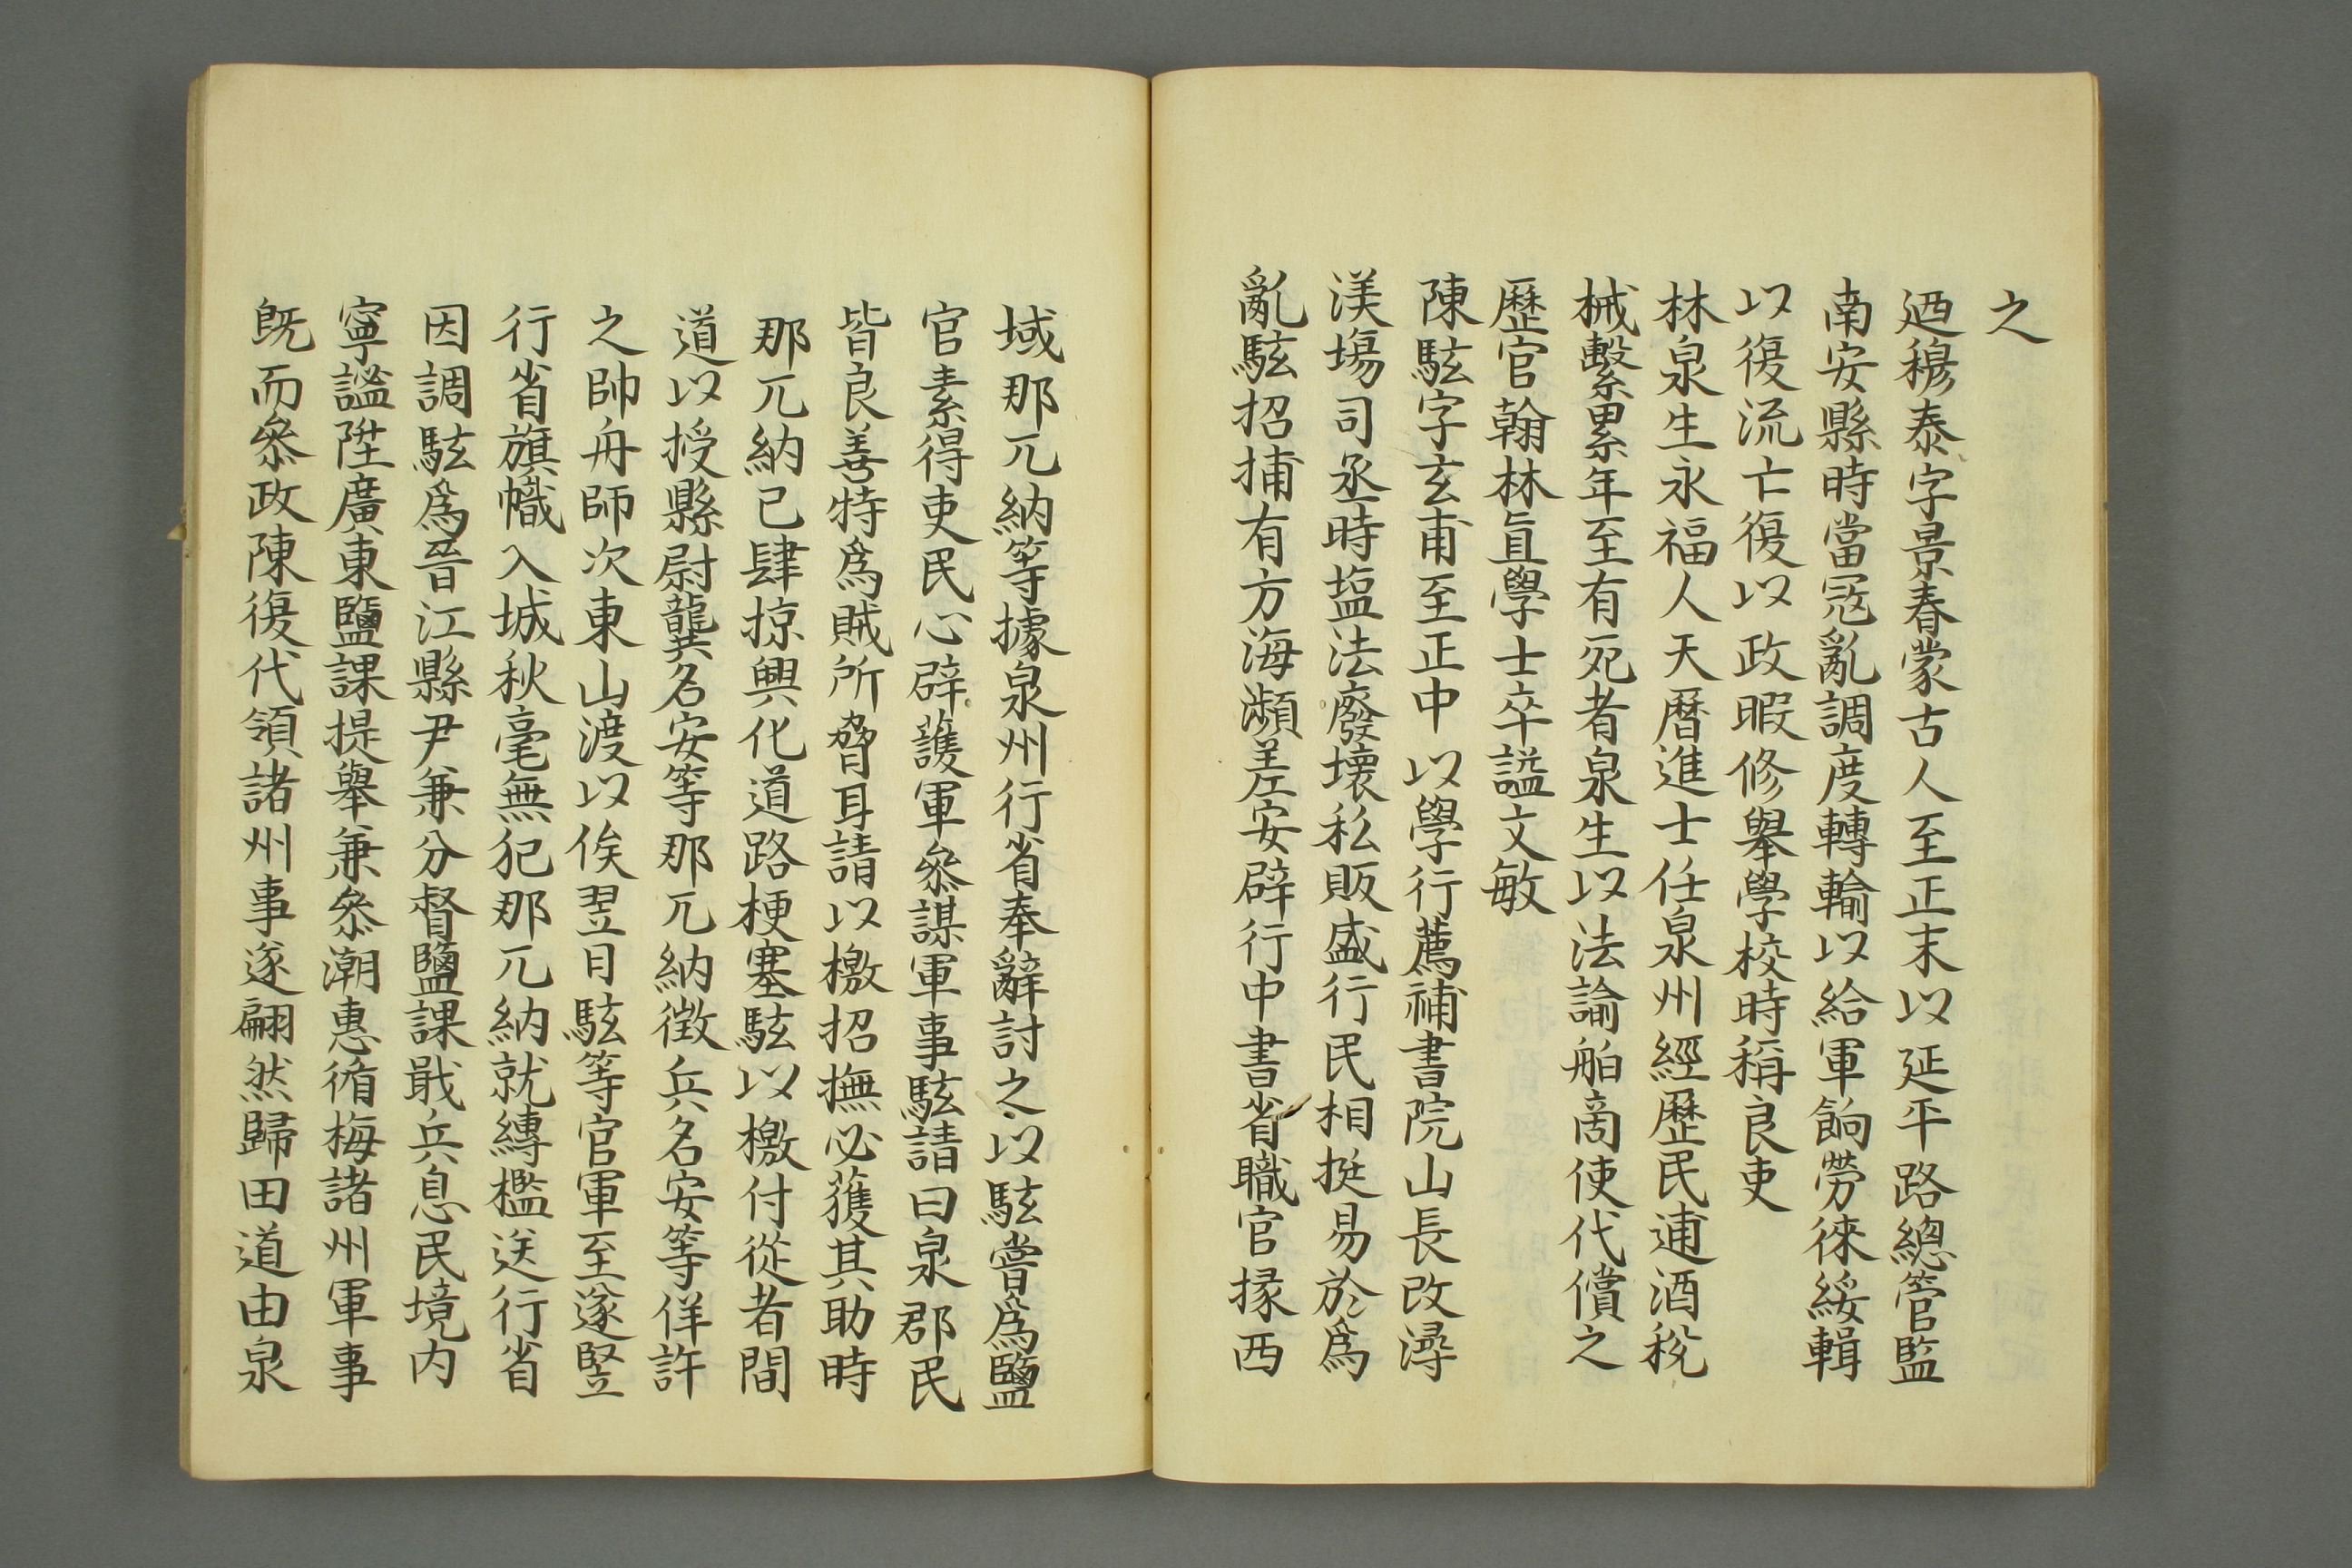 之
迺穆泰字景春蒙古人至正末以延平路總管監
南安縣時當冦亂調度轉輸以給軍餉勞徠綏輯
以復流亡復以政暇修舉學校時稱良吏
林泉生永福人天曆進士任泉州經歷民逋酒稅
械繫累年至有死者泉生以法諭舶商使代償之
歷官翰林直學士卒謚文敏
陳駭字玄甫至正中以學行薦補書院山長改潯
渼塲司丞時塩法廢壞私販盛行民相挺易於為
亂駭招捕有方海瀕差安辟行中書省職官掾西
域那兀納等據泉州行省奉辭討之以駭嘗為鹽
官素得吏民心辟護軍叅謀軍事駭請曰泉郡民
皆良善特為賊所脅耳請以檄招撫必獲其助時
那兀納已肆掠興化道路梗塞駭以檄付從者間
道以授縣尉龔名安等那兀納徵兵名安等佯許
之帥舟師次東山渡以俟翌日駭等官軍至遂竪
行省旗幟入城秋毫無犯那兀納就縛檻送行省
因調駭為晉江縣尹兼分督鹽課戢兵息民境内
寧謐陞廣東鹽課提舉兼叅潮惠循梅諸州軍事
既而叅政陳復代領諸州事遂翩然歸田道由泉